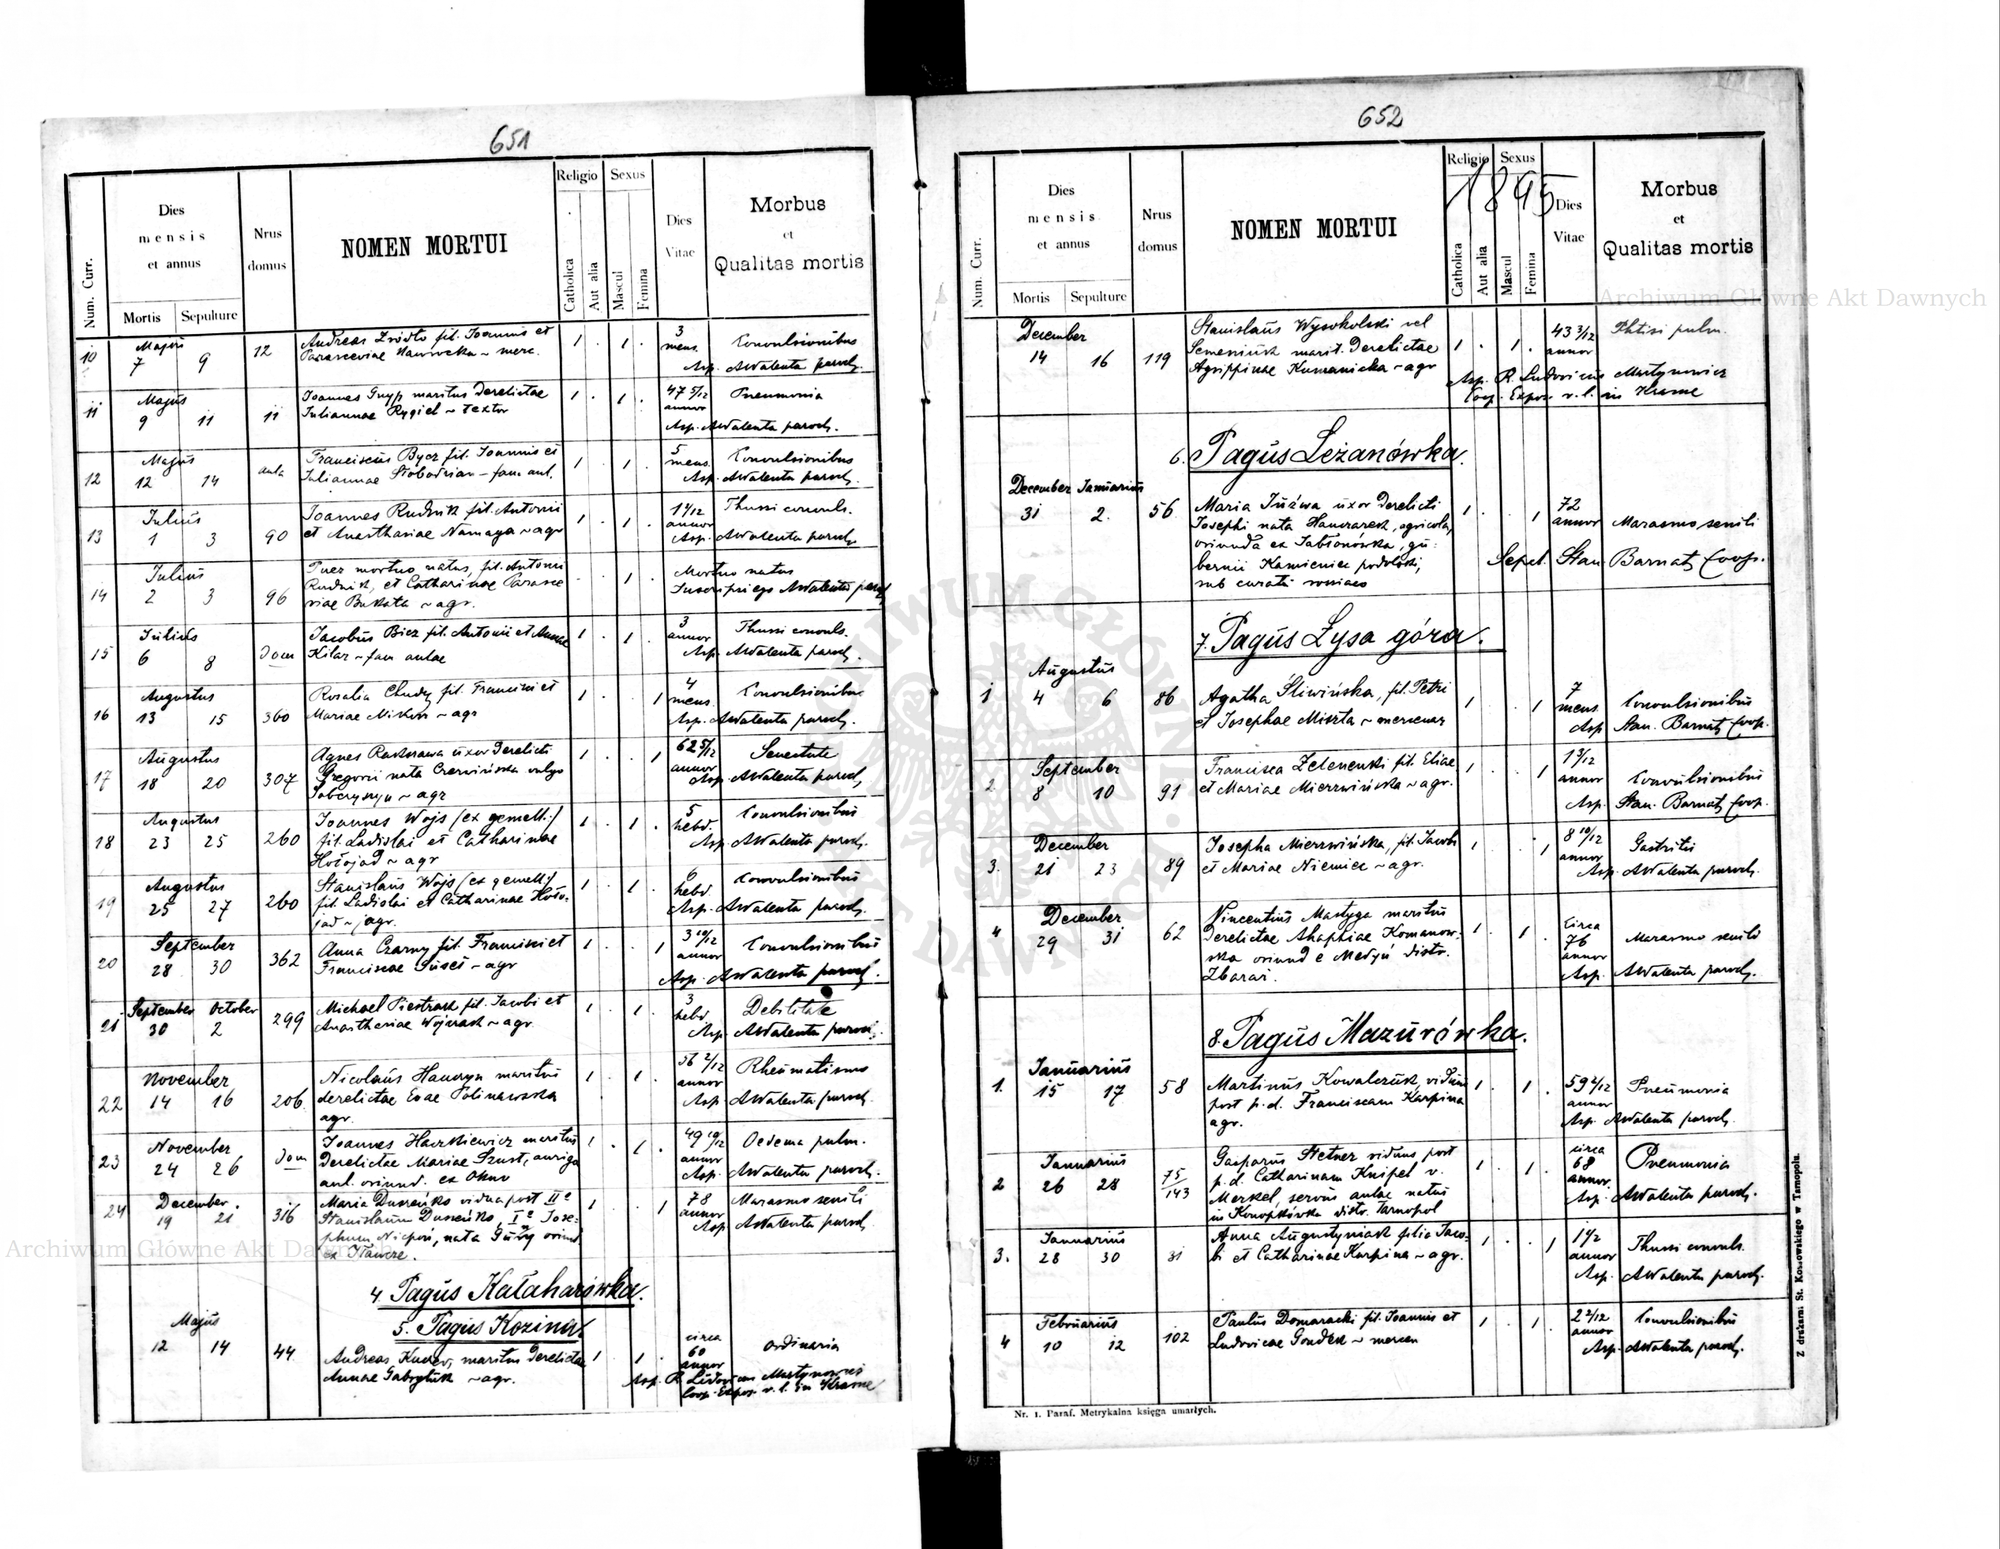 651
Num. Curr.
Dies
mensis
et annus
Mortis
Sepulture
Nrus
domus
NOMEN MORTUI
Religio
Catholica
Aut alia
Sexus
Mascul
Femina
Dies
Vitae
Morbus
et
Qualitas mortis
Majus
10 7 9 12
Andreas Źródło fil. Joannis et
Parasceviae Nawrocka ~ merc.
1 . 1 .
3
mens.
Convulsionibus
Asp. AWalenta paroch.
Majus
11 9 11 11
Joannes Gnyp maritus derelictae
Juliannae Rygiel ~ textor
1 . 1 .
47 5/12
annor
Pneumonia
Asp. AWalenta paroch.
Majus
12 12 14 aula
Franciscus Bycz fil. Joannis et
Juliannae Słobodzian ~ fam. aul.
1 . 1 .
5
mens.
Convulsionibus
Asp. AWalenta paroch.
Julius
13 1 3 90
Joannes Rudnik fil. Antonii
et Anasthasiae Namaga ~ agr
1 . 1 .
annor
Thussi convuls.
Asp. AWalenta paroch.
Julius
14 2 3 96
Puer mortuo natus, fil. Antonii
Rudnik, et Catharinae Parasce
viae Bukata ~ agr.
1 .
Mortuo natus
Inscripsi ego AWalenta paroch
Julius
15 6 8 Dom
Jacobus Bicz fil. Antonii et Annae
Kilar ~ fam aulae
1 . 1 .
3
annor
Thussi convuls.
Asp. AWalenta paroch.
Augustus
16 13 15 360
Rosalia Chudy fil. Francisci et
Mariae ~ agr
1 . . 1
4
mens.
Convulsionibus
Asp. AWalenta paroch.
Augustus
17 18 20 307
Agnes uxor derelicti
Gregorii nata Czerwińska vulgo
~ agr
1 . . 1
62 5/12
annor
Senectute
Asp. AWalenta paroch.
Augustus
18 23 25 260
Joannes Wojs (ex gemell.)
fil. Ladislai et Catharinae
Hołojad ~ agr
1 . 1 .
5
hebd.
Convulsionibus
Asp. AWalenta paroch.
Augustus
19 25 27 260
Stanislaus Wojs (ex gemell.)
fil. Ladislai et Catharinae Hoło-
jad ~ agr.
1 . 1 .
6
hebd.
Convulsionibus
Asp. AWalenta paroch.
September
20 28 30 362
Anna Czarny fil. Francisci et
Franciscae ~ agr
1 . . 1
3 10/12
annor
Convulsionibus
Asp. AWalenta paroch.
September October
21 30 2 299
Michael Pietrzak fil. Jacobi et
Anastasiae Wojczak ~ agr.
1 . 1 .
3
hebd
Debilitate
Asp. AWalenta paroch.
November
22 14 16 206
Nicolaus Hawryn maritus
derelictae Evae Polinawska
agr.
1 . 1 .
56 2/12
annor
Rheumatismo
Asp. AWalenta paroch.
November
23 24 26 Dom
Joannes Haczkiewicz maritus
derelictae Mariae Szust, auriga
aul. oriund. ex Okno
1 . 1 .
49 10/12
annor
Oedema pulm.
Asp. AWalenta paroch.
December
24 19 21 316
Maria Duneńko vidua post IIo
Stanislaum Duneńko, Io Jose-
phum, nata Guzy oriund
ex Iławcze.
1 . . 1
78
annor
Marasmo senili
Asp. AWalenta paroch.
4. Pagus Kałaharówka.
5. Pagus Kozina.
Majus
12 14 44
Andreas, maritus derelictae
Annae ~ agr.
1 1 .
circa
60
annor
Ordinaria
Asp. R. Ludovicus Martynowicz
Coop. Expos. r. l. in Krasne
652
1895
Num. Curr.
Dies
mensis
et annus
Mortis
Sepulture
Nrus
domus
NOMEN MORTUI
Religio
Catholica
Aut alia
Sexus
Mascul
Femina
Dies
Vitae
Morbus
et
Qualitas mortis
December
14 16 119
Stanislaus Wysokolski vel
Semeniuk marit. derelictae
Agrippinae Kumanicka ~ agr
1 . 1 .
43 3/12
annor
Phtisi pulm.
Asp. R. Ludovicus Martynowicz
Coop. Expos. r. l. in Krasne
6. Pagus Leżanówka.
December Januarius
31 2. 56
Maria Juźwa uxor derelicti
Josephi nata, agricola,
oriunda ex Jabłonówka, gu-
bernii Kamieniec podolski,
sub
1 . . 1
72
annor
Marasmo senili
Sepel. Stan. Barnaś Coop.
7. Pagus Łysa góra.
Augustus
1 4 6 86
Agatha Śliwińska, fil. Petri
et Josephae Miszta ~ mercenar
1 . . 1
7
mens.
Convulsionibus
Asp Stan. Barnaś Coop.
September
2 8 10 91
Francisca Zelenenski fil. Eliae
et Mariae Mierzwińska ~ agr.
1 . . 1
annor
Convulsionibus
Asp. Stan. Barnaś Coop.
December
3. 21 23 89
Josepha Mierzwińska, fil. Jacobi
et Mariae Niemiec ~ agr.
1 . . 1
8 10/12
annor
Gastritis
Asp. AWalenta paroch.
December
4 29 31 62
Vincentius Mastyga maritus
derelictae Ahaphiae Komanow-
ska oriund e Medyń distr.
Zbaraż.
1 . 1 .
circa
76
annor
Marasmo senili
Asp. AWalenta paroch.
8. Pagus Mazurówka.
Januarius
1. 15 17 58
Martinus Kowalczuk, viduus
post p. d. Franciscam Karpina
agr.
1 . 1 .
annor
Pneumonia
Asp. AWalenta paroch.
Januarius
2 26 28 75/143
Gasparus Stetner viduus post
p. d. Catharinam Knipel v.
Merkel, servus aulae natus
in Konopkówka distr. Tarnopol
1 . 1 .
circa
68
annor.
Pneumonia
Asp. AWalenta paroch.
Januarius
3. 28 30 31
Anna Augustyniak filia Jaco-
bi et Catharinae Karpina ~ agr.
1 . . 1
annor
Thussi convuls.
Asp. AWalenta paroch.
Februarius
4 10 12 102
Paulus Domaracki fil. Joannis et
Ludovicae Gondek ~ mercen
1 . 1 .
2 2/12
annor
Convulsionibus
Asp. AWalenta paroch.
Nr. 1. Paraf. Metrykalna księga umarłych.
Z drukarni St. Kossowskiego w Tarnopolu.
Archiwum Główne Akt Dawnych
Archiwum Główne Akt Dawnych
ARCHIWUM GŁÓWNE AKT DAWNYCH